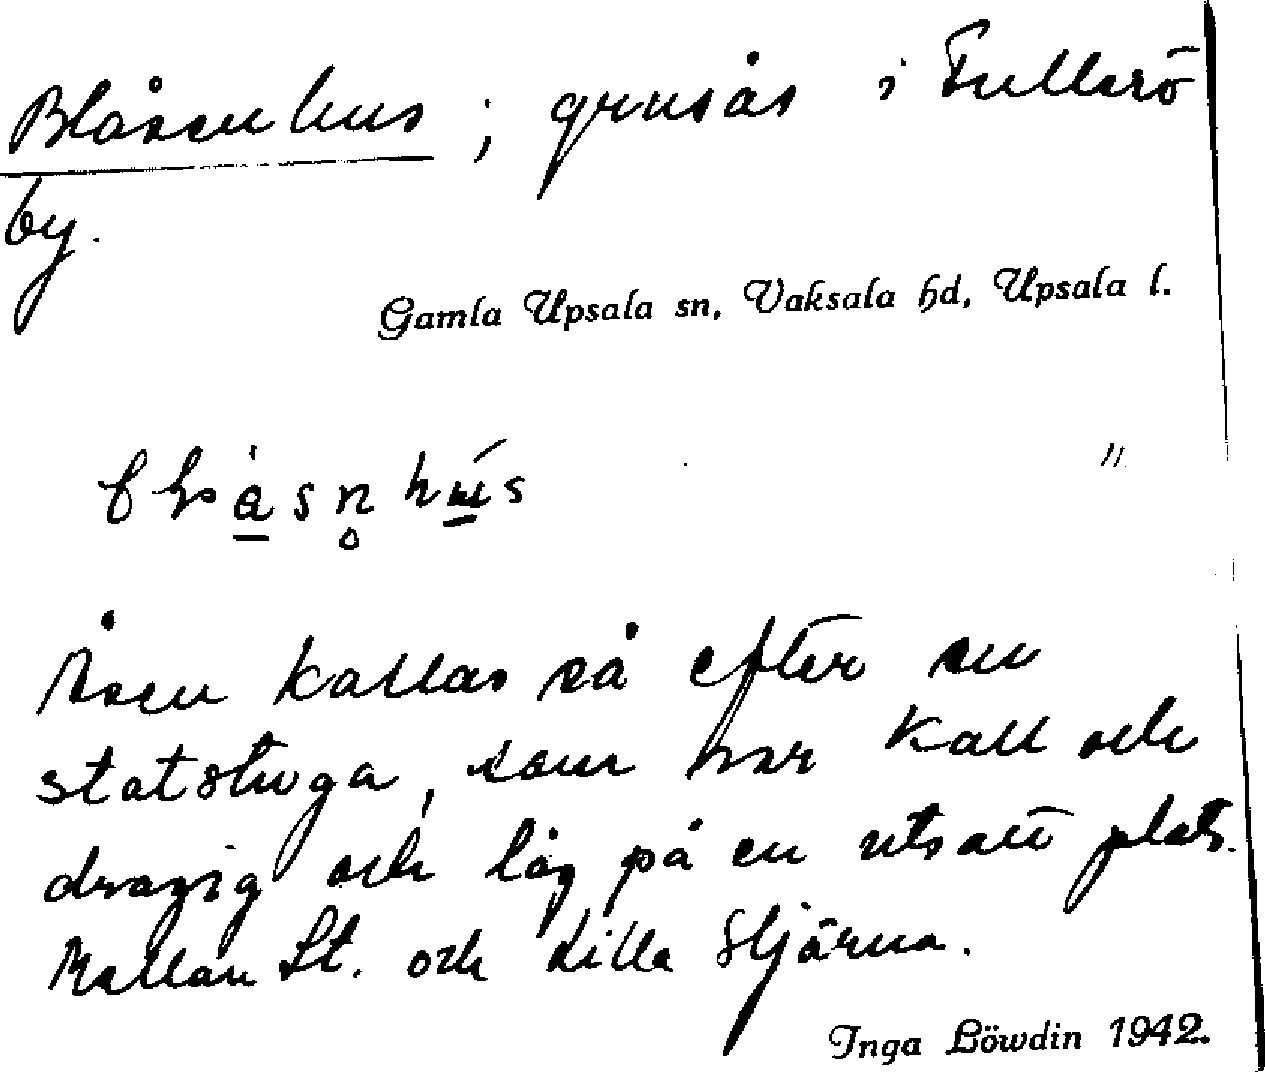 Blåsenhus; grusås i Fullerö
by.
Gamla Upsala sn, Vaksala hd, Upsala l.
"
Åsen kallas så efter en
statstuga, som var kall och
dragig och låg på en utsatt plats.
Mellan St. och Lilla Stjärna.
Inga Löwdin 1942.